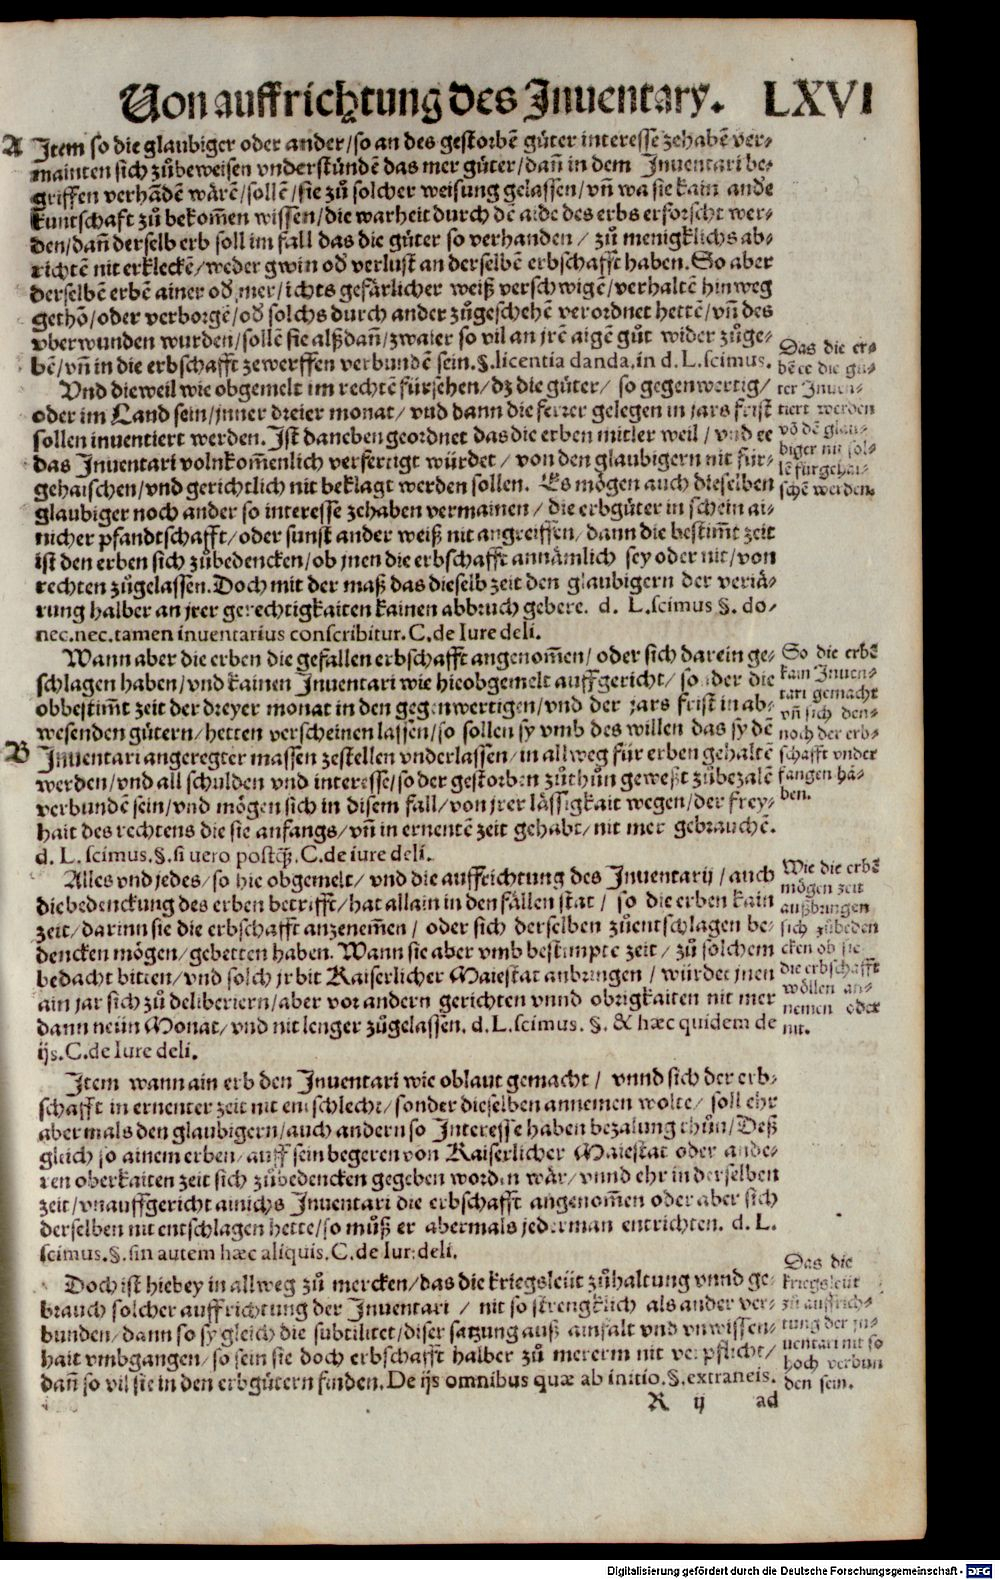 Von auffrichtung des Inuentary. LXVI
A Item so die glaubiger oder ander/so an des gestorbē güter interesse zehabē ver-
mainten sich zůbeweisen vnderstůndē das mer güter/dañ in dem Inuentari be-
griffen verhādē wärē/sollē/sie zů solcher weisung gelassen/vñ wa sie kain ande
kuntschaft zů bekom̃en wissen/die warheit durch dē aide des erbs erforscht wer-
den/dañ derselb erb soll im fall das die güter so verhanden/ zů menigklichs ab-
richtē nit erkleckē/weder gwin od verlust an derselbē erbschafft haben. So aber
derselbē erbē ainer od mer/ichts gefärlicher weiß verschwigē/verhaltē hinweg
gethō/oder verborgē/od solchs durch ander zůgeschehē verordnet hettē/vñ des
vberwunden wurden/sollē sie alßdañ/zwaier so vil an jrē aigē gůt wider zůge-
bē/vñ in die erbschafft zewerffen verbundē sein.§.licentia danda, in d. L.scimus.
Vnd dieweil wie obgemelt im rechtē fürsehen/dz die güter/ so gegenwertig/
oder im Land sein/inner dreier monat/ vnd dann die ferrer gelegen in jars frist
sollen inuentiert werden. Ist daneben geordnet das die erben mitler weil/ vnd ee
das Inuentari volnkom̃enlich verfertigt würdet/ von den glaubigern nit für-
gehaischen/vnd gerichtlich nit beklagt werden sollen. Es mögen auch dieselben
glaubiger noch ander so interesse zehaben vermainen/ die erbgüter in schein ai-
nicher pfandtschafft/oder sunst ander weiß nit angreiffen/dann die bestim̃t zeit
ist den erben sich zůbedencken/ob jnen die erbschafft annämlich sey oder nit/von
rechten zůgelassen. Doch mit der maß das dieselb zeit den glaubigern der veriä-
rung halber an jrer gerechtigkaiten kainen abbruch gebere. d. L.scimus §. do-
nec.nec.tamen inuentarius conscribitur. C. de Iure deli.
Das die er-
bē ee die gü-
ter Inuen-
tiert werden
vō dē glau-
biger nit sol-
lē fürgehai-
schē werden.
Wann aber die erben die gefallen erbschafft angenom̃en/ oder sich darein ge-
schlagen haben/vnd kainen Inuentari wie hieobgemelt auffgericht/ sonder die
obbestim̃t zeit der dreyer monat in den gegenwertigen/vnd der jars frist in ab-
wesenden gütern/hetten verscheinen lassen/so sollen sy vmb des willen das sy dē
B Inuentari angeregter massen zestellen vnderlassen/in allweg für erben gehaltē
werden/vnd all schulden vnd interesse/so der gestorben zůthůn geweßt zůbezalē
verbundē sein/vnd mögen sich in disem fall/von jrer lässigkait wegen/der frey-
hait des rechtens die sie anfangs/vñ in ernentē zeit gehabt/nit mer gebrauchē.
d. L. scimus.§.si uero postq̃3. C.de iure deli.
So die erbē
kain Inuen-
tari gemacht
vñ sich den-
noch der erb-
schafft vnder
fangen hä-
ben.
Alles vnd jedes/so hie obgemelt/ vnd die auffrichtung des Inuentarij/auch
die bedenckung des erben betrifft/hat allain in den fällen stat/ so die erben kain
zeit/darinn sie die erbschafft anzenem̃en/ oder sich derselben zůentschlagen be-
dencken mögen/gebetten haben. Wann sie aber vmb bestimpte zeit/ zů solchem
bedacht bitten/vnd solch jr bit Kaiserlicher Maiestat anbringen/ würdet jnen
ain jar sich zů deliberiern/aber vor andern gerichten vnnd obrigkaiten nit mer
dann neün Monat/vnd nit lenger zůgelassen. d. L.scimus. §. & hæc quidem de
ijs. C. de Iure deli.
Wie die erbē
mögen zeit
außbringen
sich zůbeden
cken ob sie
die erbschafft
wöllen an-
nemen oder
nit.
Item wann ain erb den Inuentari wie oblaut gemacht/ vnnd sich der erb-
schafft in ernenter zeit nit entschlecht/sonder dieselben annemen wolte/ soll ehr
abermals den glaubigern/auch andern so Interesse haben bezalung thůn/Deß
gleich so ainem erben/auff sein begeren von Kaiserlicher Maiestat oder ande-
ren oberkaiten zeit sich zůbedencken gegeben worden wär/vnnd ehr in derselben
zeit/vnauffgericht ainichs Inuentari die erbschafft angenom̃en oder aber sich
derselben nit entschlagen hette/so můß er abermals jederman entrichten. d. L.
scimus.§.sin autem hæc aliquis. C. de Iure deli.
Doch ist hiebey in allweg zů mercken/das die kriegsleüt zůhaltung vnnd ge-
brauch solcher auffrichtung der Inuentari/ nit so strengklich als ander ver-
bunden/dann so sy gleich die subtilitet/diser satzung auß ainfalt vnd vnwissen-
hait vmbgangen/so sein sie doch erbschafft halber zů mererm nit verpflicht/
dañ so vil sie in den erbgütern finden. De ijs omnibus quæ ab initio.§.extraneis.
Das die
kriegsleüt
zů auffrich-
tung der in-
uentari nit so
hoch verbun
den sein.
R ij ad
Digitalisierung gefördert durch die Deutsche Forschungsgemeinschaft - DFG